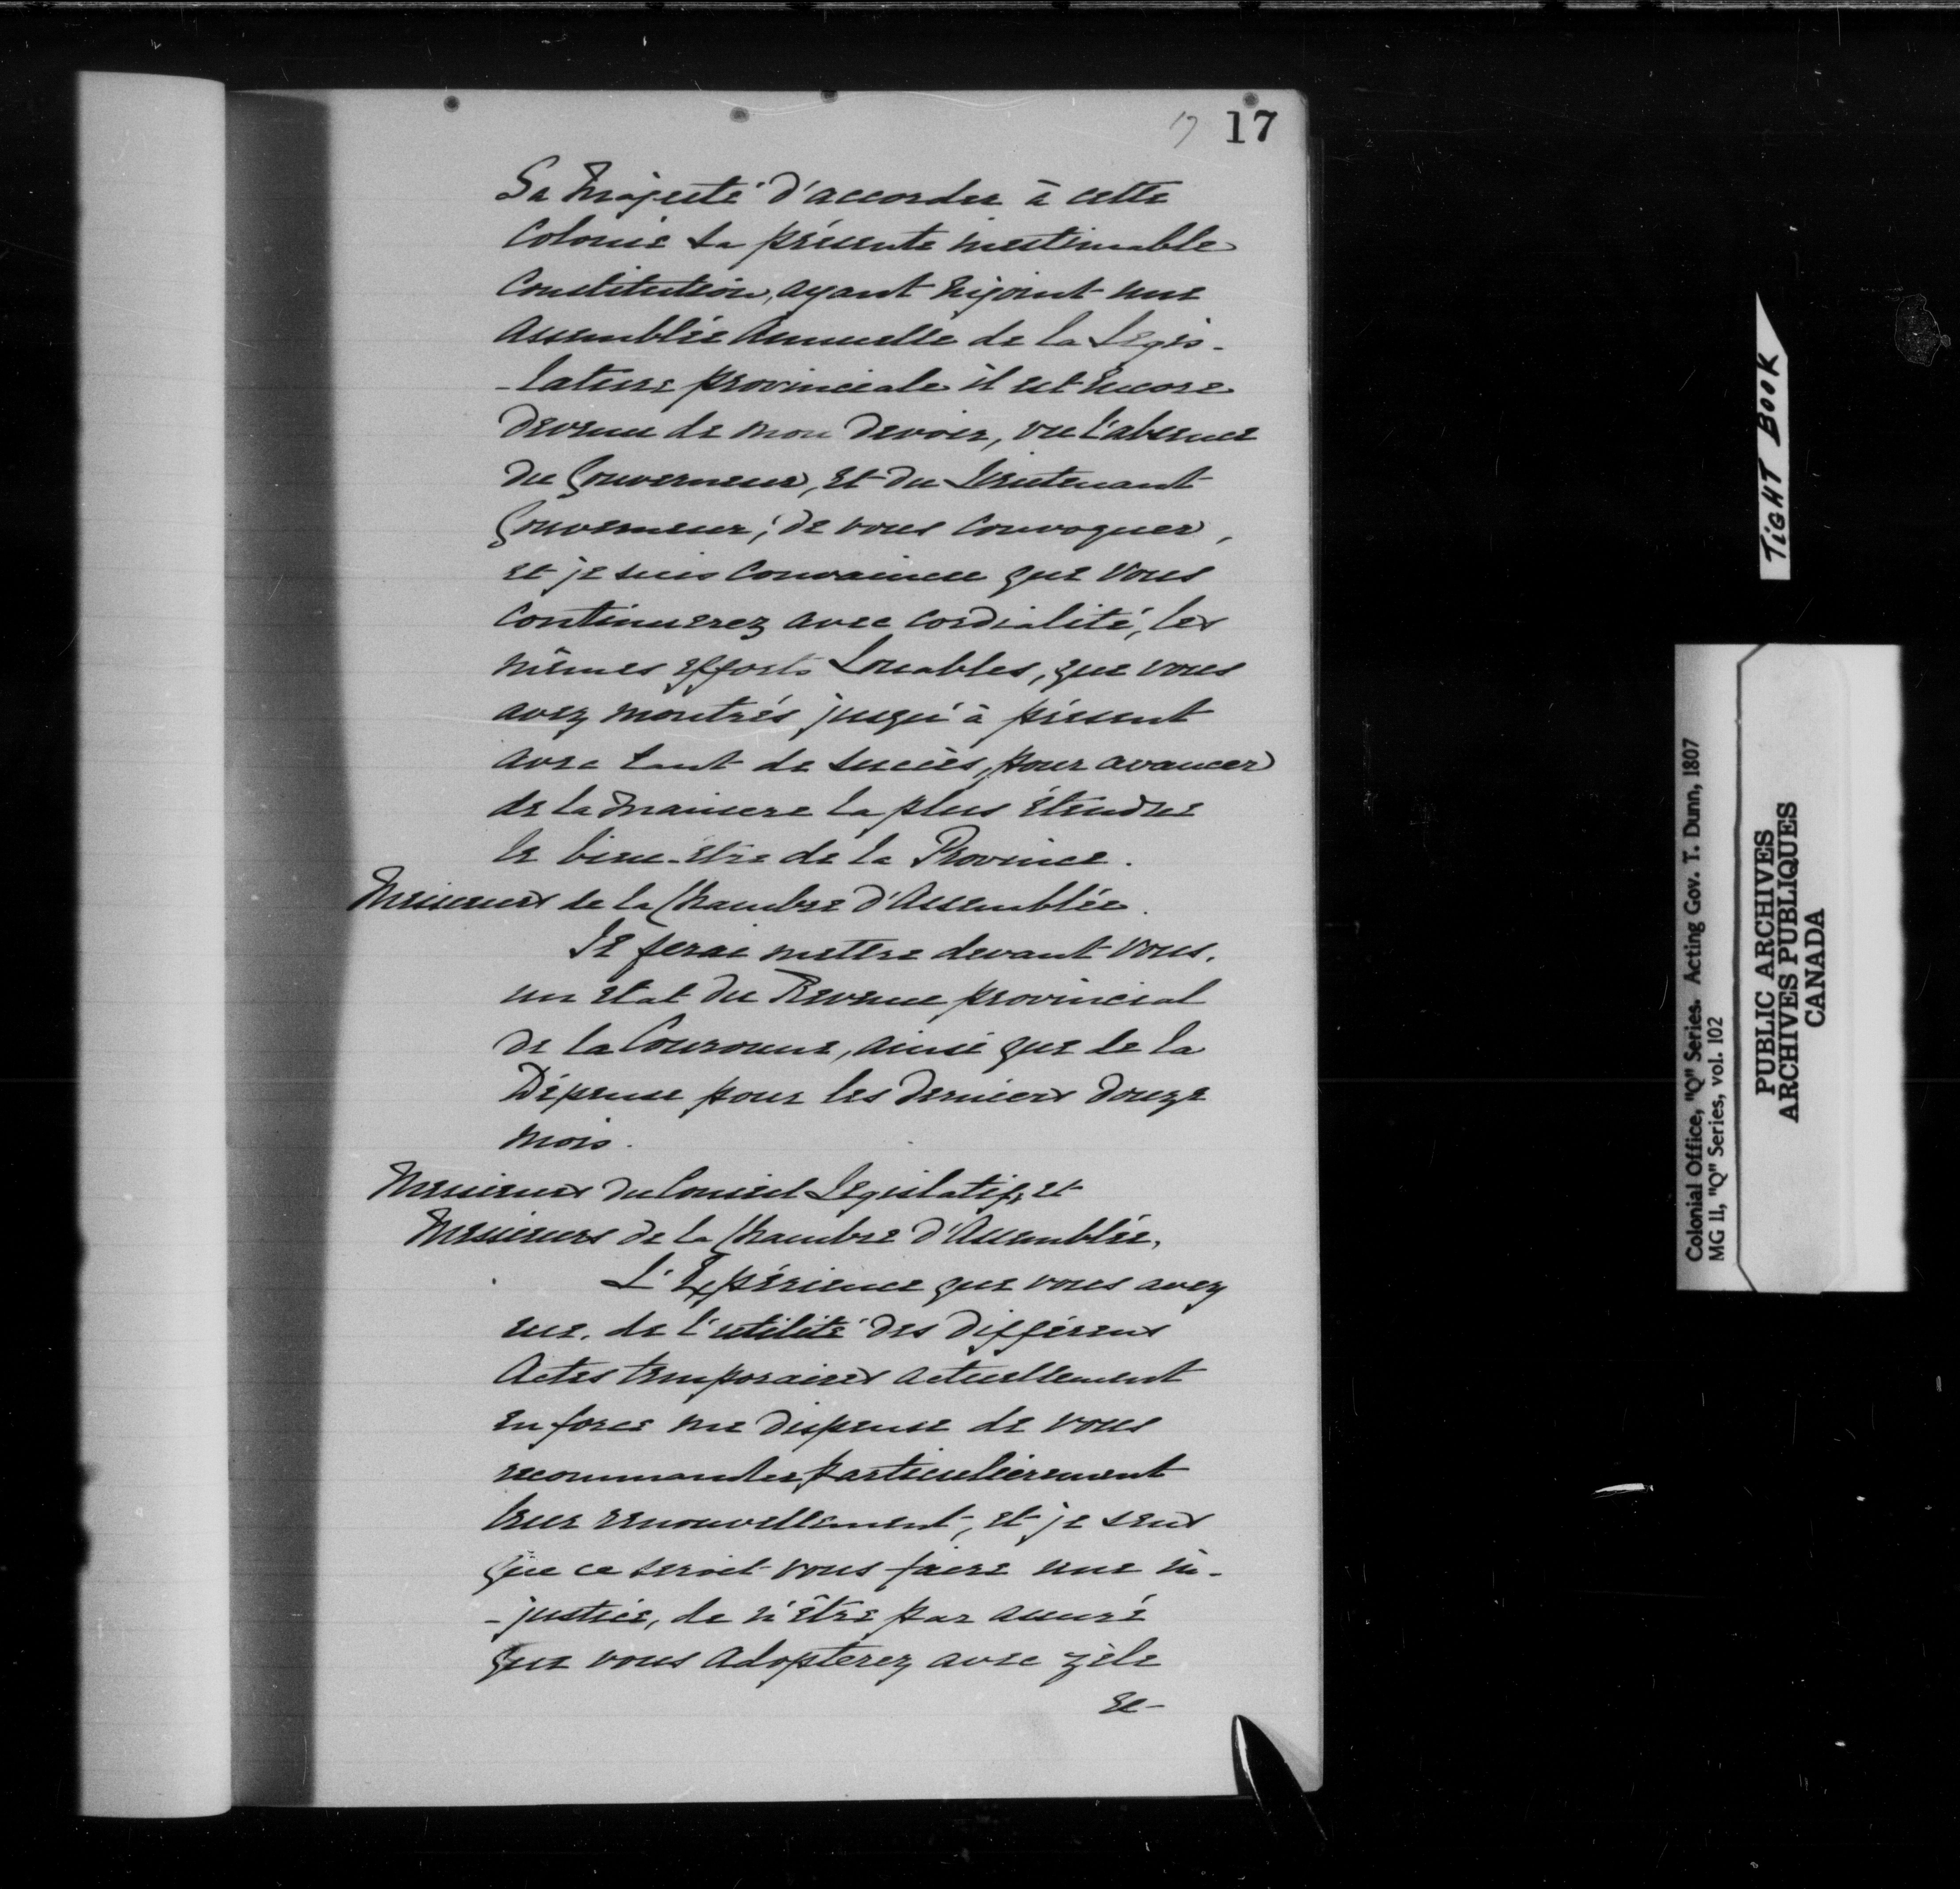 17 17
Sa Majesté d'accorder à cette
Colonie sa présente inestimable
Constitution, ayant enjoint une
Assemblée Annuelle de la Légis-
-lature provinciale il est encore
devenu de mon devoir, vu l'absence
du Gouverneur, et du Lieutenant
Gouverneur, de vous convoquer,
et je suis convaincu que vous
continuerez avec cordialité, les
mêmes efforts Louables, que vous
avez montrés jusqu'à présent
avec tant de succès, pour avancer
de la maniere la plus étendue
le bien-être de la Province.
Messieurs de la Chambre d'Assemblée.
Je ferai mettre devant vous,
un etat du Revenu provincial
de la Couronne, ainsi que de la
Dépense pour les derniers douze
mois.
Messieurs du Conseil Legislatif, et
Messieurs de la Chambre d'Assemblée,
L'Expérience que vous avez
eue, de l'utilité des différens
Actes temporaires actuellement
en force me dispense de vous
recommander particulièrement
leur renouvellement, et je sens
que ce seroit vous faire une in-
-justice, de n'être pas assuré
que vous adopterez avec zèle
et-
TIGHT BOOK
Colonial Office, "Q" Series. Acting Gov. T. Dunn, 1807
MG 11, "Q" Series, vol. 102
PUBLIC ARCHIVES
ARCHIVES PUBLIQUES
CANADA